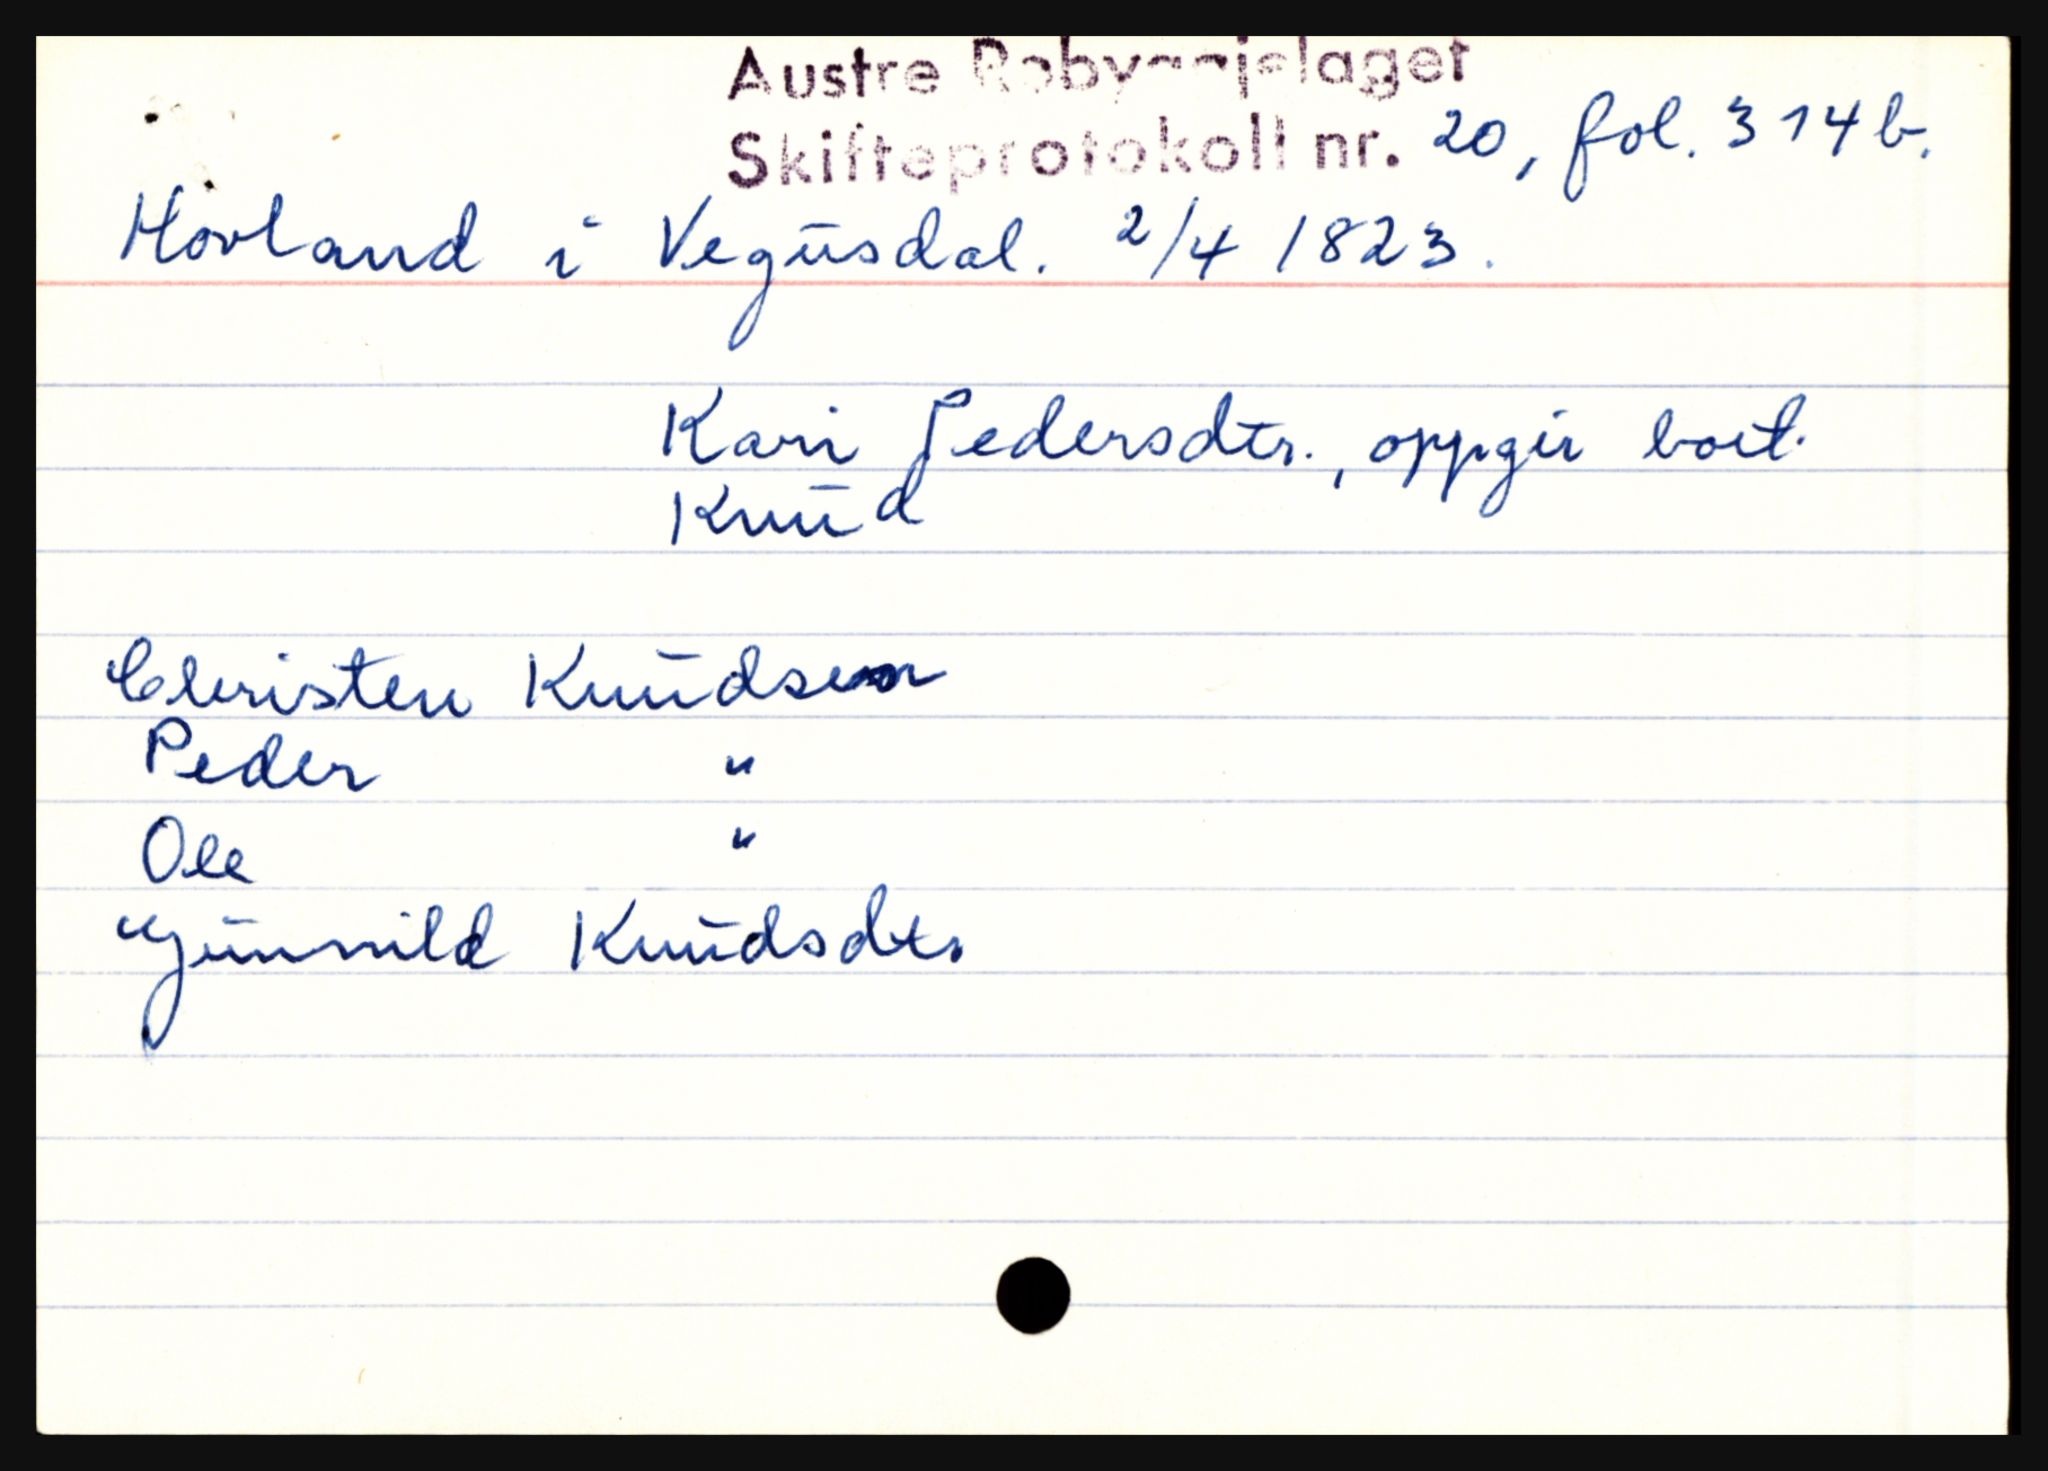 Austre Robyggjelaget
Skifteprotokoll nr. 20, fol. 314b.
Hovland i Vegusdal. 2/4 1823.
Kari Pedersdtr., oppgir boet.
Knud
Christen Knudsen
Peder "
Ole "
Gunnild Knudsdtr.